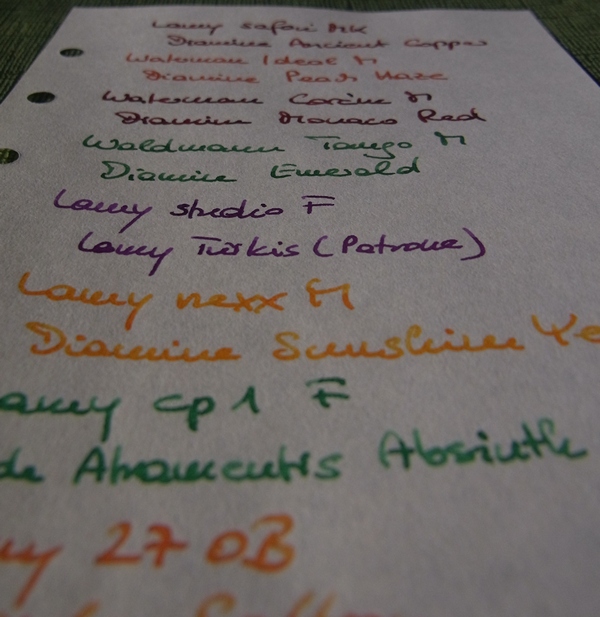 Lamy safari MK
Diamine Ancient Copper
Waterman Ideal M
Diamine Peach Haze
Waterman Carène M
Diamine Monaco Red
Waldmann Tango M
Diamine Emerald
Lamy studio F
Lamy Türkis (Patrone)
Lamy nexx M
Diamine Sunshine Ye
amy cp 1 F
de Atramentis Absinth
my 27 OB